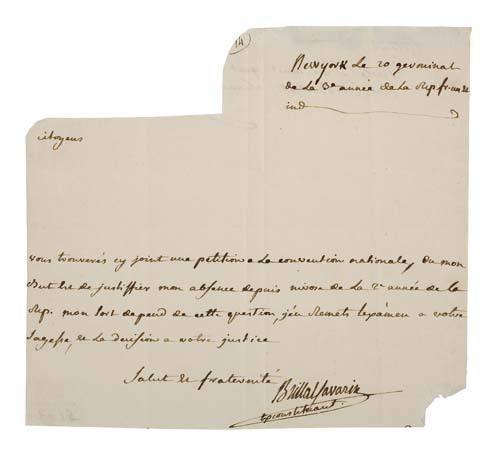 14
Newyork Le 20 germinal
de La 3e année de La Rep. fr. une et
ind
citoyens
vous trouverés cy joint une petition a La convention nationale, ou mon
but est de justiffier mon absence depuis nivose de La 2e année de la
Rep. mon sort depend de cette question, j'en Remets lexamen a votre
sagesse, et La decision a votre justice
Salut et fraternité
Brillat Savarin
exconstituant.